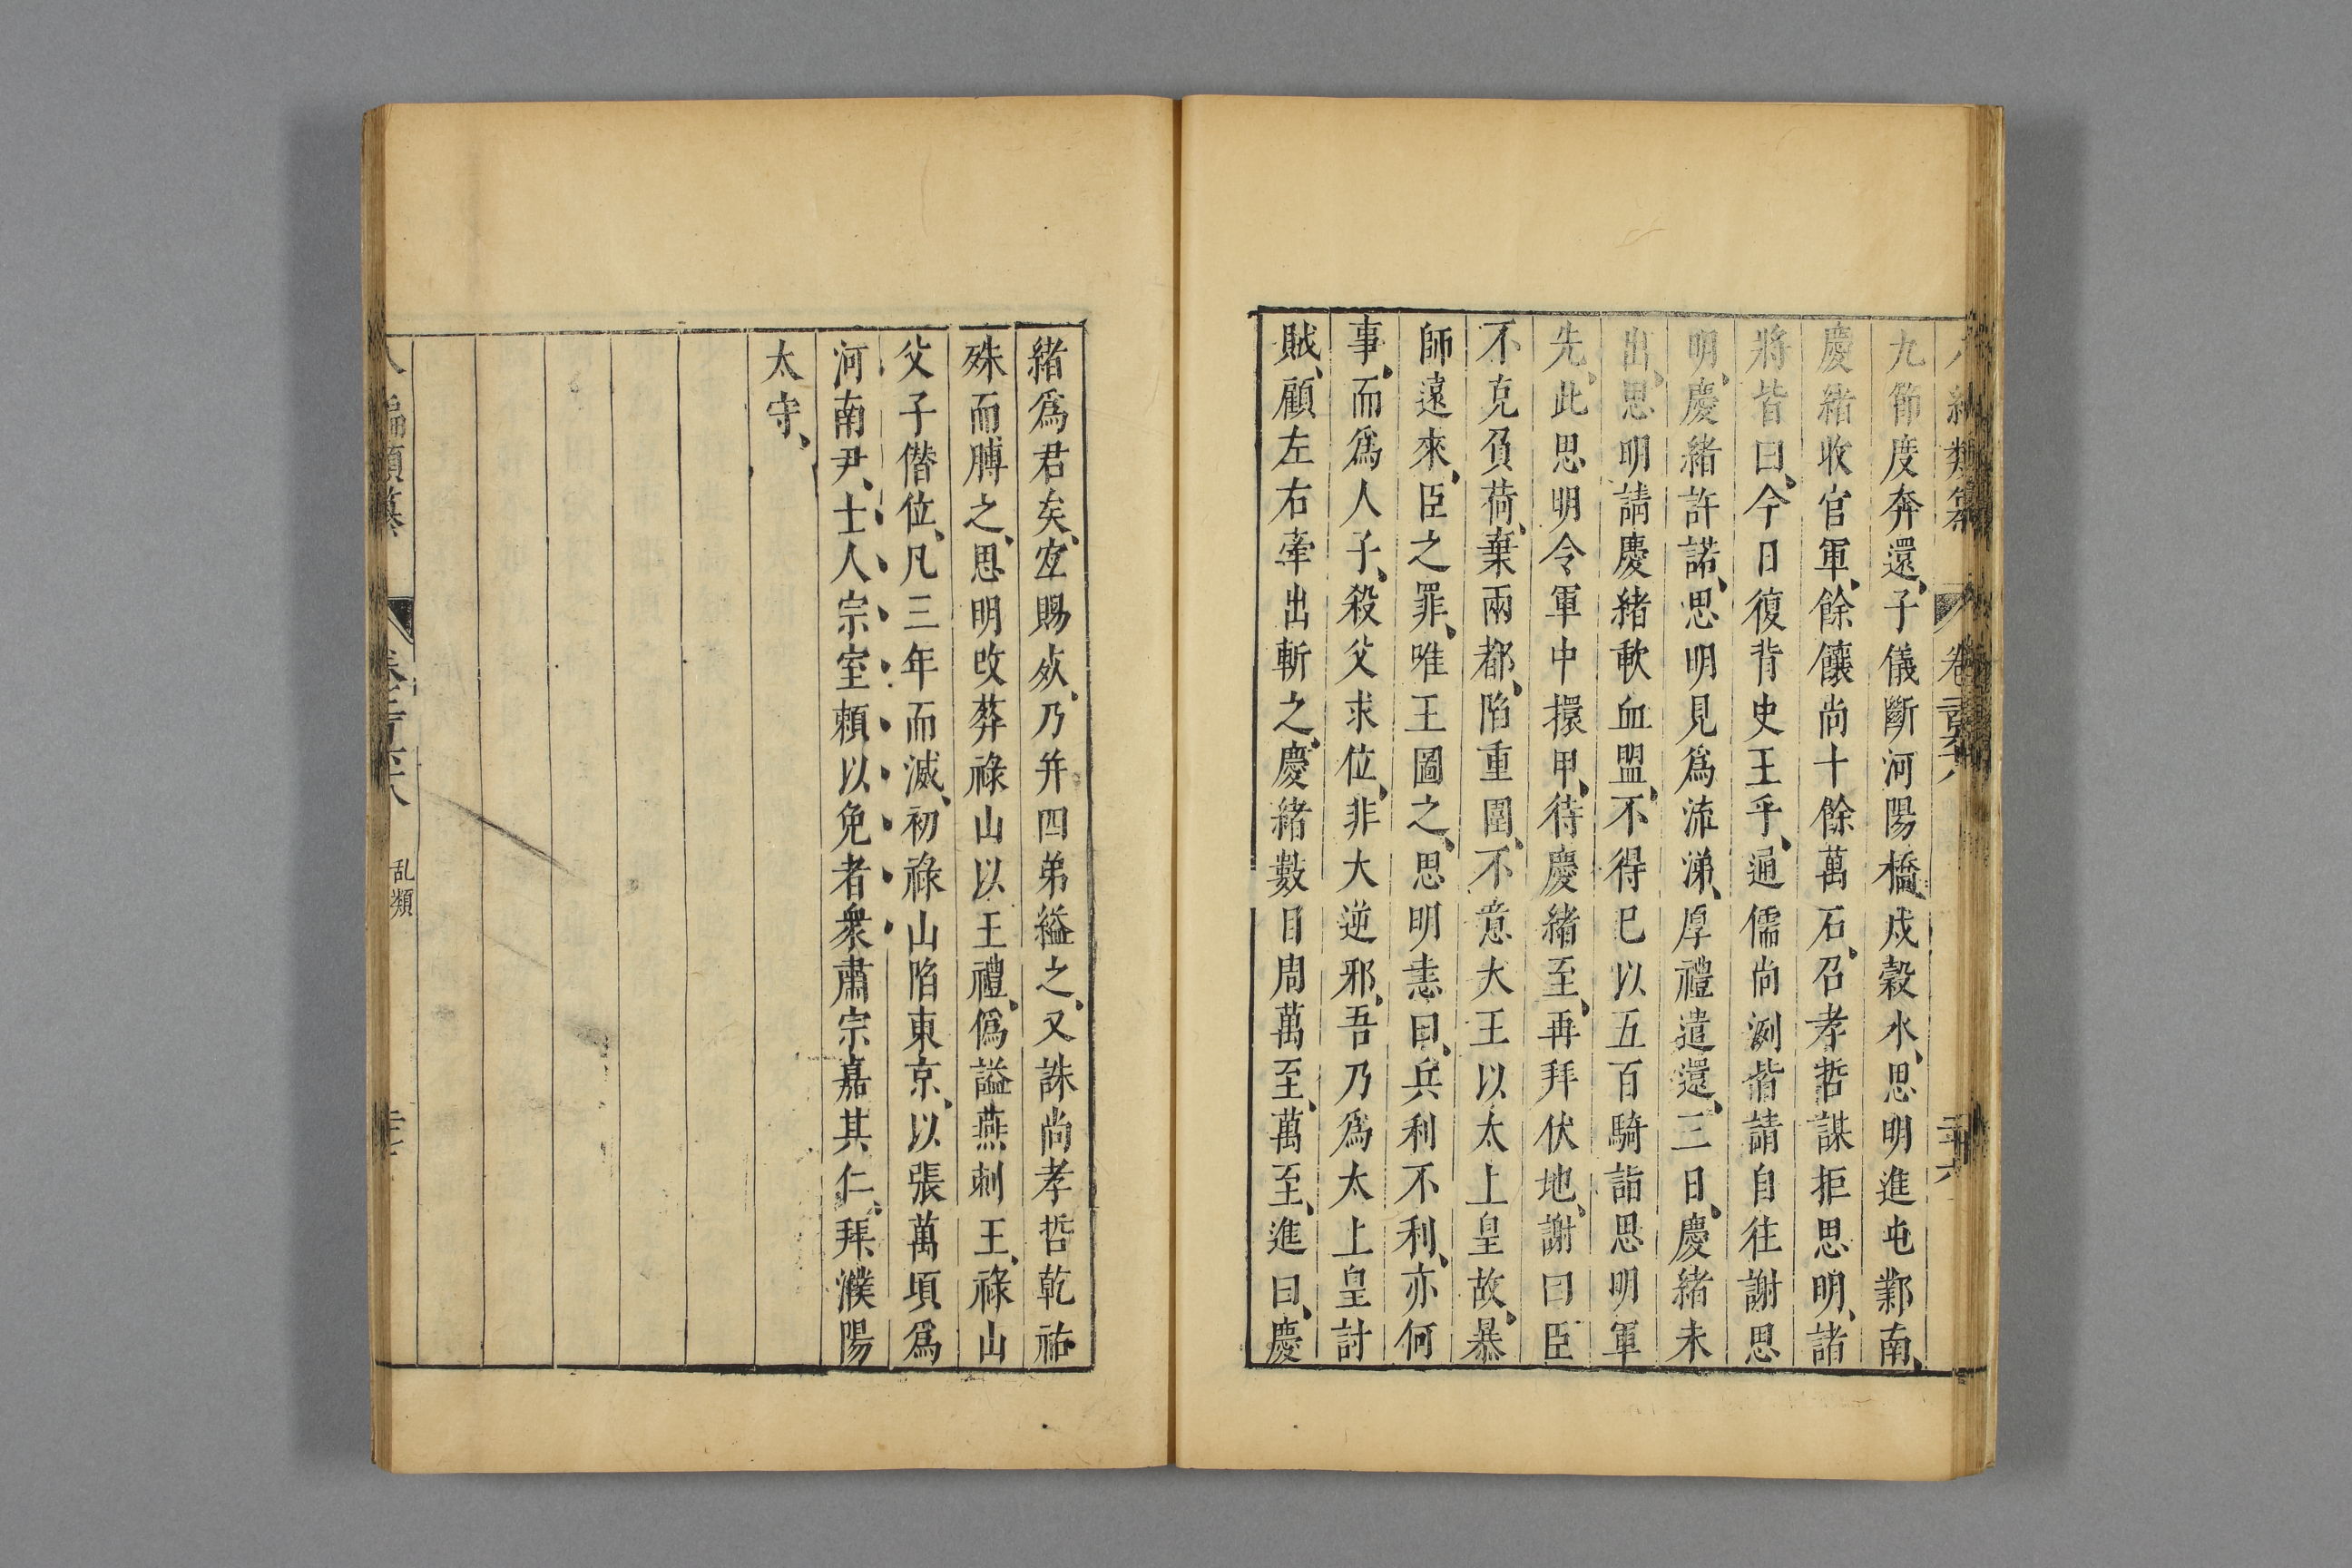 九節度奔還、子儀斷河陽橋、戍穀水、思明進屯鄴南、
慶緒收官軍、餘饟尚十餘萬石、召孝哲謀拒思明、諸
將皆曰、今日復背史王乎、通儒尚洌皆請自往謝思
明、慶緒許諾、思明見爲流涕、厚禮遣還、三日、慶緒未
出、思明請慶緒歃血盟、不得已以五百騎詣思明軍
先、此思明令軍中擐甲、待慶緒至、再拜伏地、謝曰臣
不克負荷、棄兩都、陷重圍、不意大王以太上皇故、暴
師遠來、臣之罪、唯王圖之、思明恚曰、兵利不利、亦何
事、而爲人子、殺父求位、非大逆邪、吾乃爲太上皇討
賊、顧左右牽出斬之、慶緒數目周萬至、萬至、進曰、慶
緒爲君矣、宜賜死、乃并四弟縊之、又誅尚孝哲乾祐
殊而膊之、思明改葬祿山以王禮、僞謚燕剌王、祿山
父子僭位、凡三年而滅、初祿山陷東京、以張萬頃爲
河南尹、士人宗室賴以免者衆肅宗嘉其仁、拜濮陽
太守、
編類纂
乱類